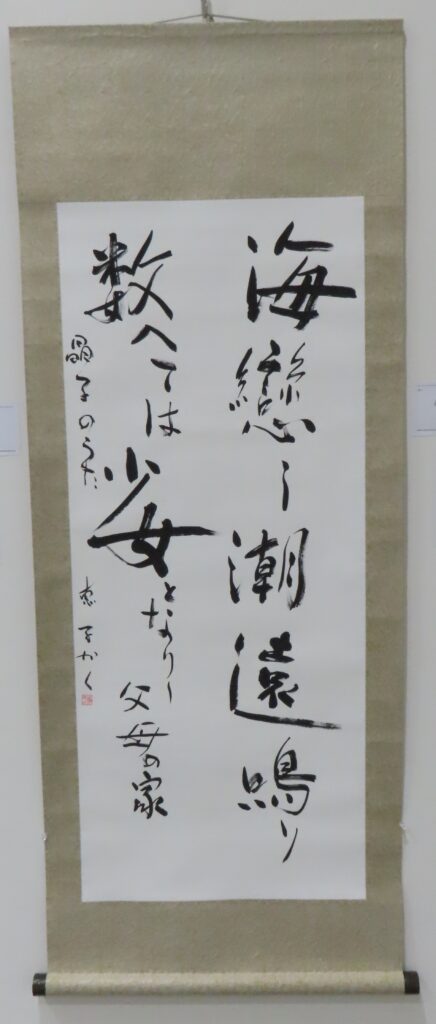 海戀し潮遠鳴り
数へては少女となりし父母の家
晶子のうた 恵子かく